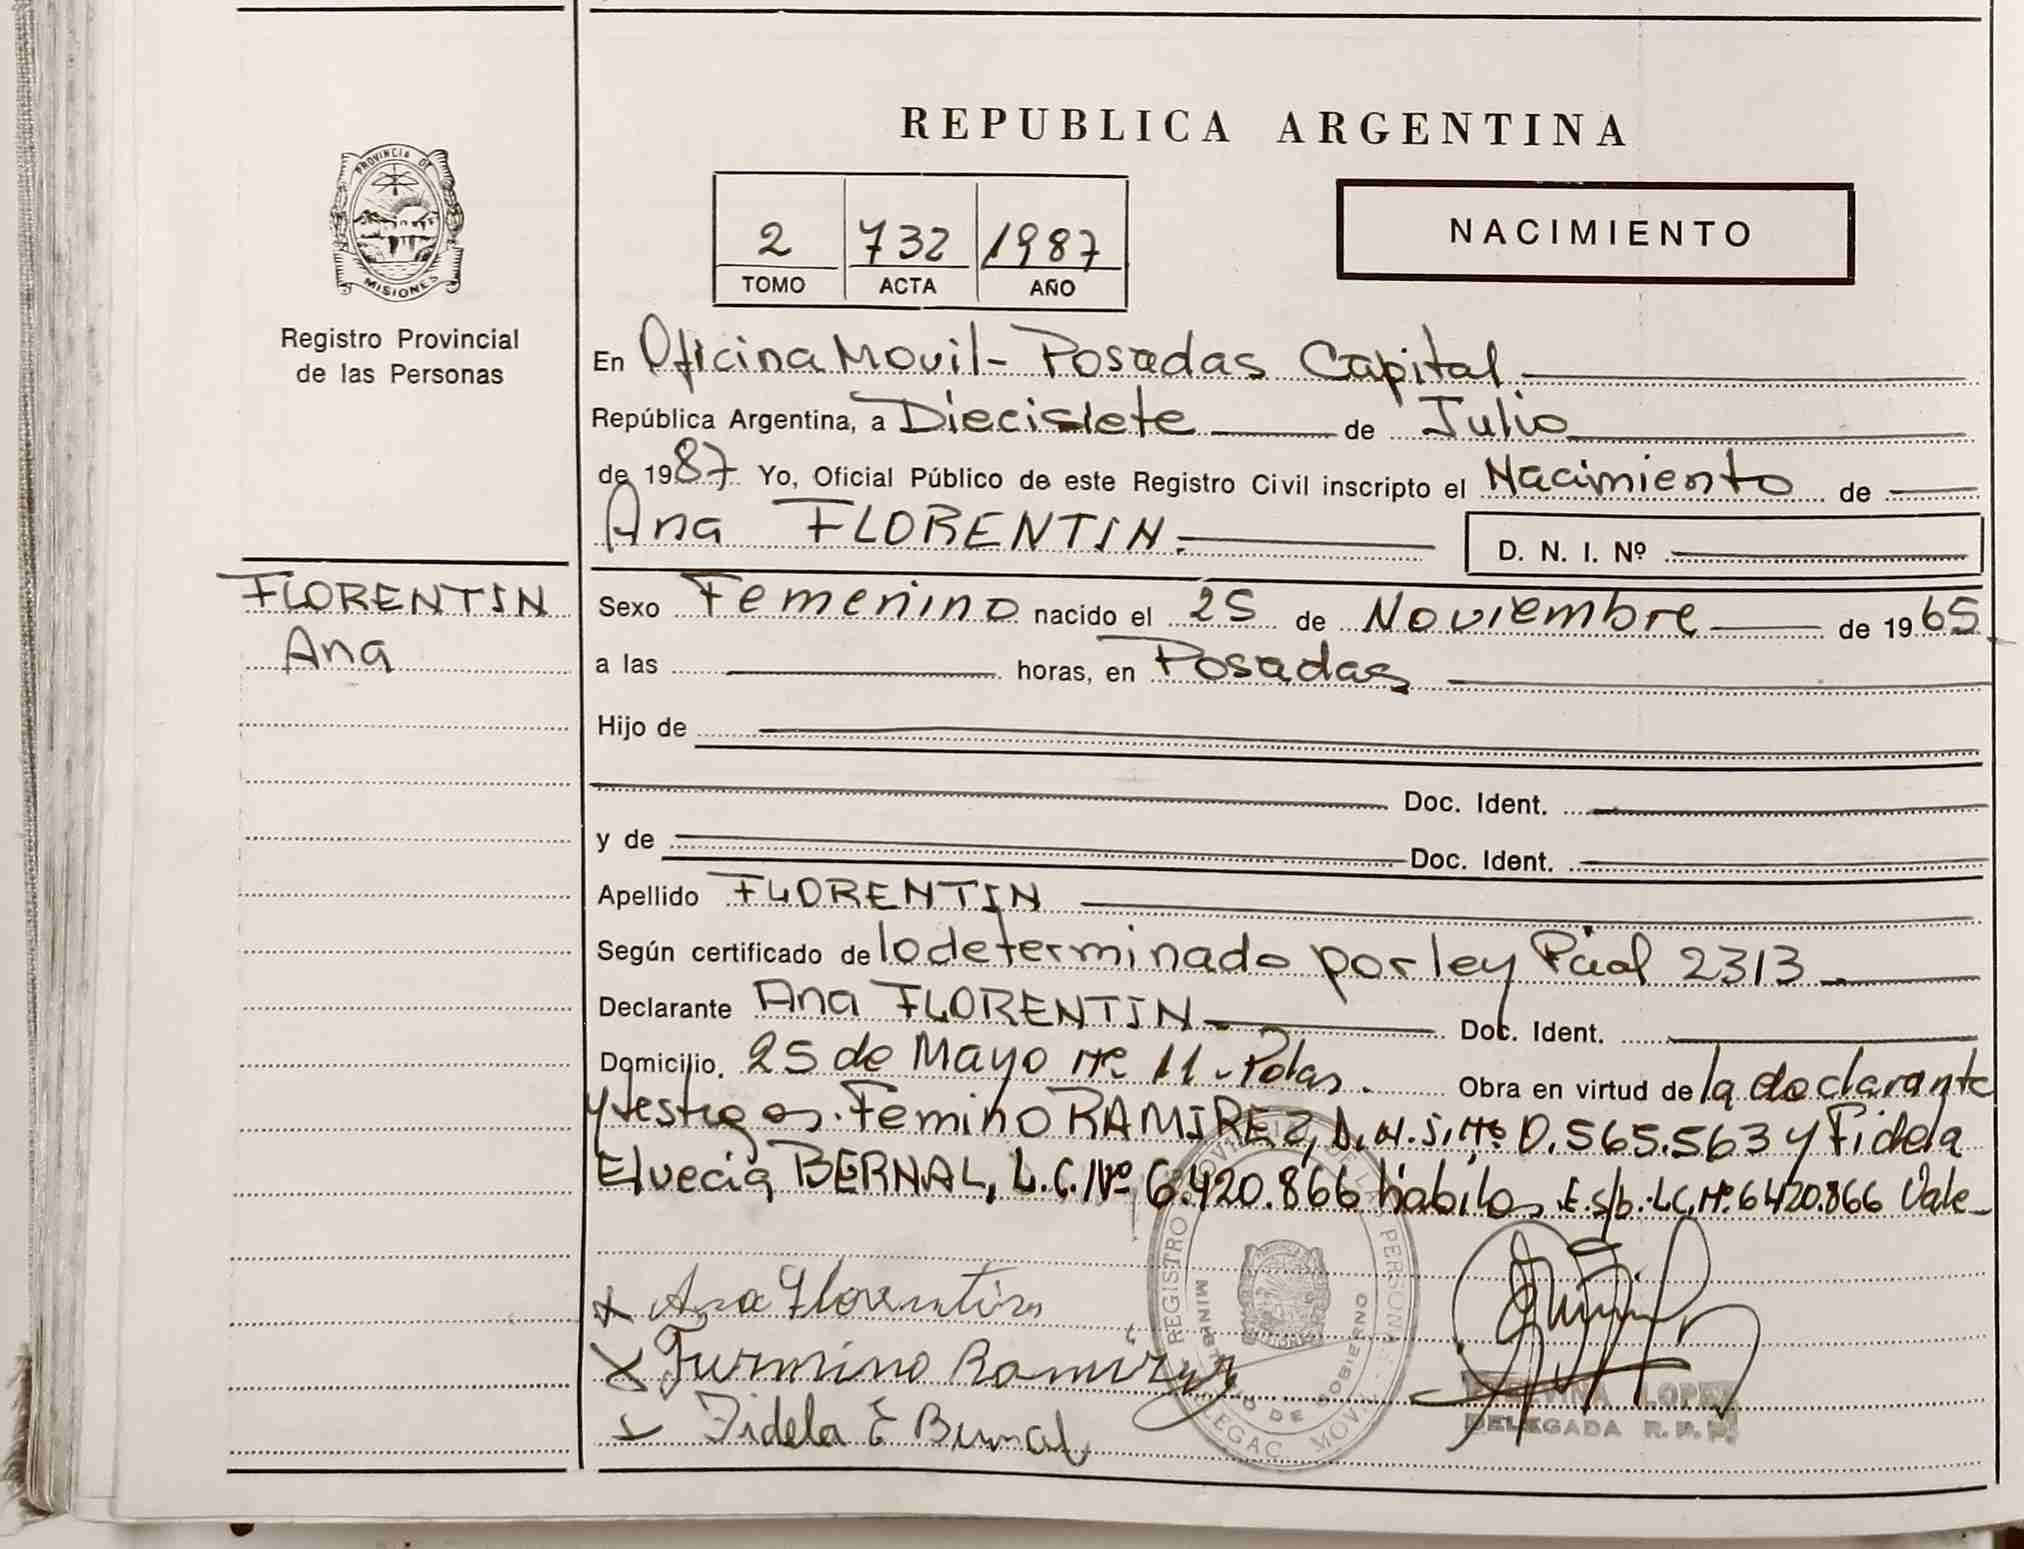 REPUBLICA ARGENTINA
PROVINCIA DE
MISIONES
Registro Provincial
de las Personas
2 732 1987
TOMO ACTA AÑO
NACIMIENTO
En Oficina Movil - Posadas Capital
República Argentina, a Diecisiete de Julio
de 1987 Yo, Oficial Público de este Registro Civil inscripto el Nacimiento de
Ana FLORENTIN.
D. N. I. Nº
FLORENTIN
Ana
Sexo Femenino nacido el 25 de Noviembre de 1965
a las horas, en Posadas
Hijo de
Doc. Ident.
y de Doc. Ident.
Apellido FLORENTIN
Según certificado de lo determinado por ley Pcial 2313
Declarante Ana FLORENTIN Doc. Ident.
Domicilio. 25 de Mayo Nº 11 - Pdas. Obra en virtud de la declarante
y testigos. Femino RAMIREZ, D.N.I. Nº 0.565.563 y Fidela
Elvecia BERNAL, L.C. Nº 6.420.866 habiles E.s/b: L.C. Nº 6420.866 Vale
Ana Florentin
Furmino Ramirez
Fidela E Bernal
REGISTRO PROVINCIAL DE LAS PERSONAS
MINISTERIO DE GOBIERNO
DELEGAC. MOVIL
LOPEZ
DELEGADA R. P. P.